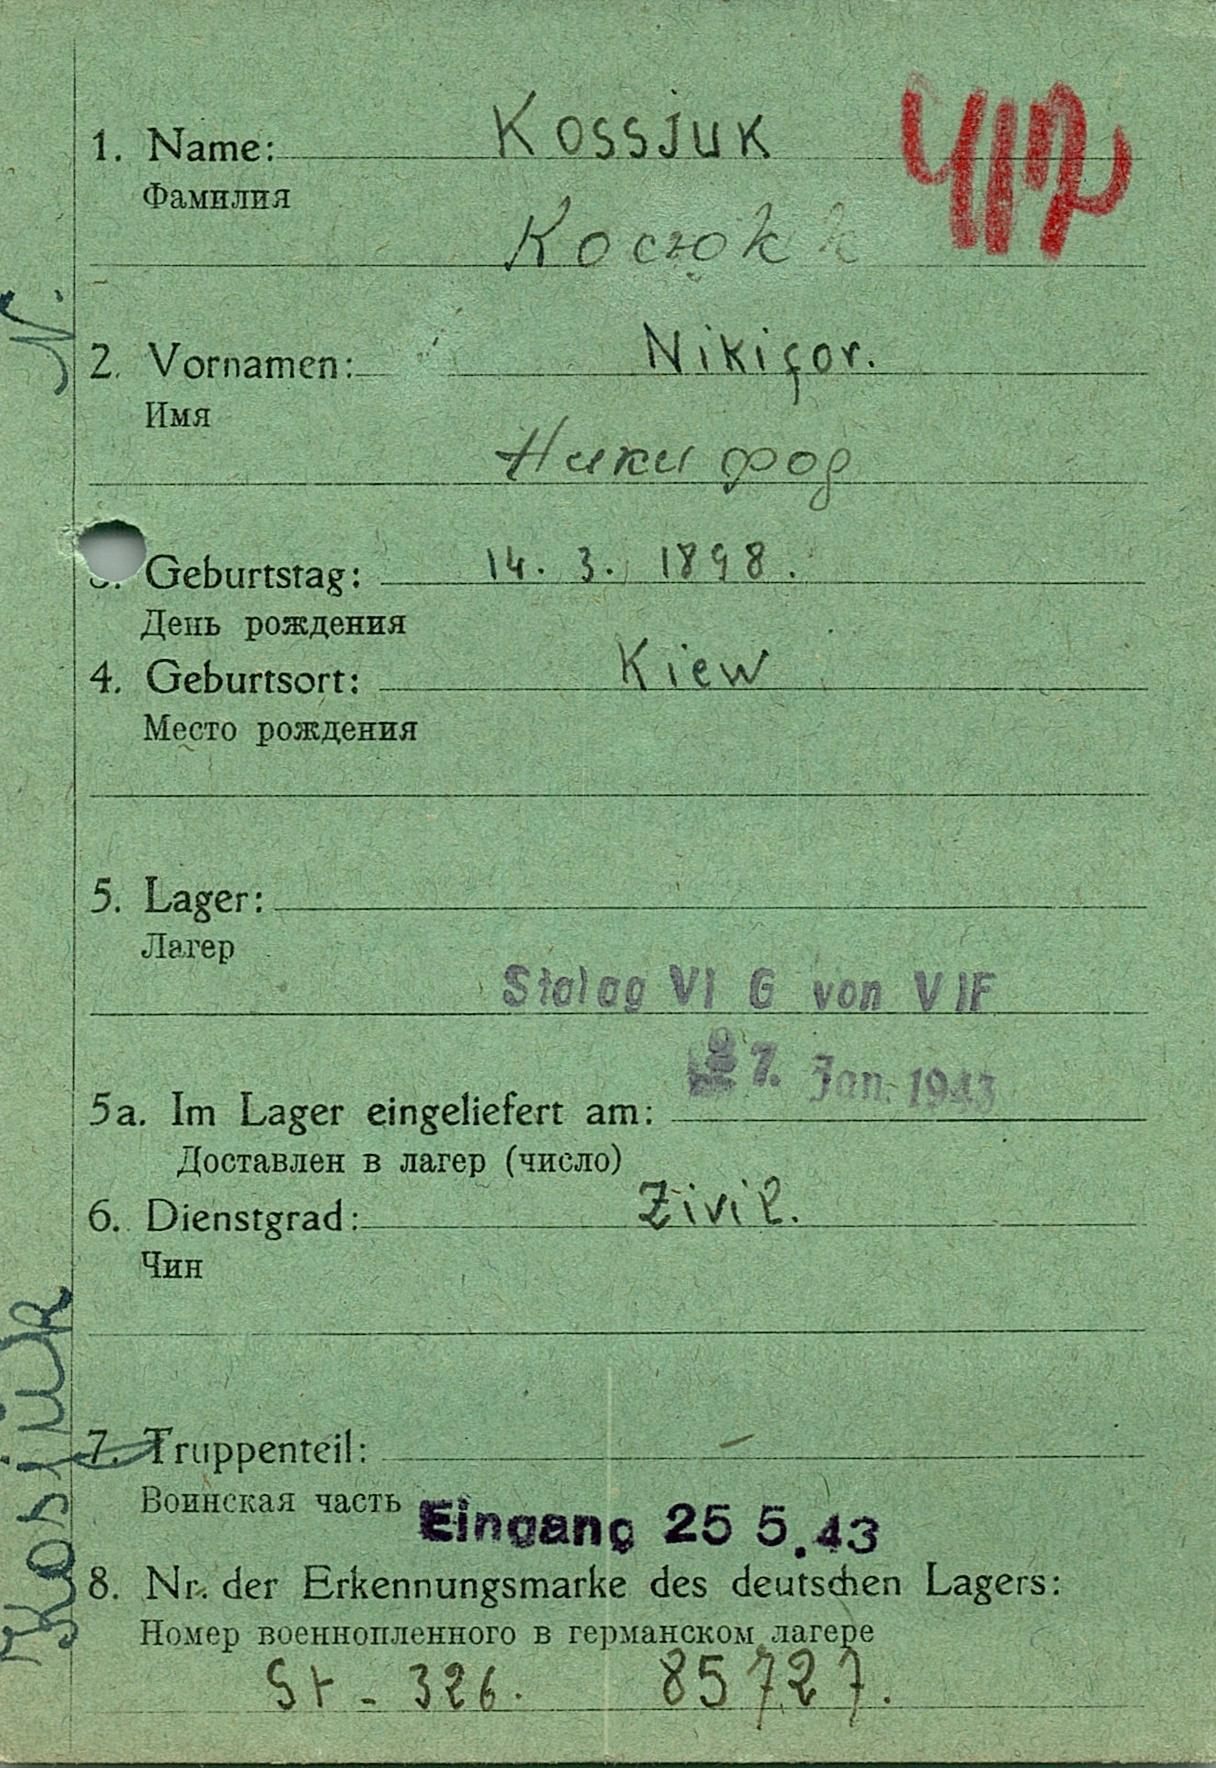 1. Name: Kossjuk
Фамилия
Косюк к
2. Vornamen: Nikifor.
Имя
Никифор
3. Geburtstag: 14. 3. 1898.
День рождения
4. Geburtsort: Kiew
Место рождения
5. Lager:
Лагер
Stalag VI G von VI F
27. Jan. 1943
5a. Im Lager eingeliefert am:
Доставлен в лагер (число)
6. Dienstgrad: Zivil.
Чин
7. Truppenteil: –
Воинская часть
Eingang 25 5.43
8. Nr. der Erkennungsmarke des deutschen Lagers:
Номер военнопленного в германском лагере
St - 326. 85727.
Kosjuk N.